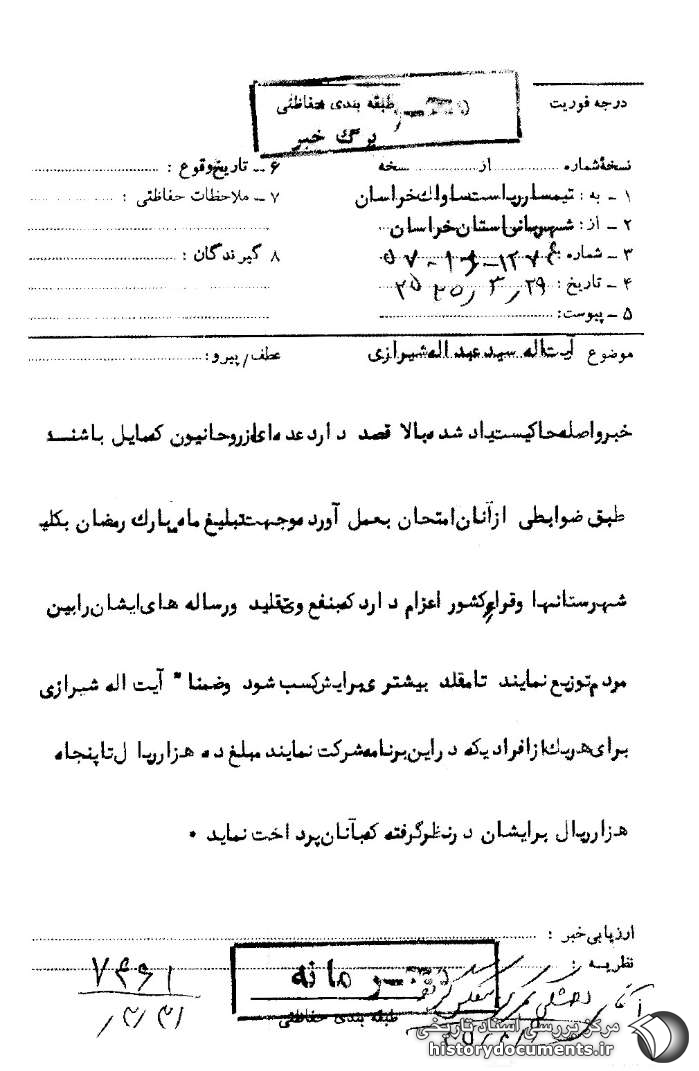 درجه فوریت
طبقه بندی حفاظتی
برگ خبر
نسخهٔ شماره .......... از .......... نسخه
۱ ـ به : تیمسار ریاست ساواک خراسان
۲ ـ از : شهربانی استان خراسان
۳ ـ شماره :
۴ ـ تاریخ : ۲۹ ر ۳ ر
۵ ـ پیوست :
۶ ـ تاریخ وقوع :
۷ ـ ملاحظات حفاظتی :
۸ گیرندگان :
موضوع آیت اله سید عبد اله شیرازی
عطف/ پیرو :
خبر واصله حاکیست یاد شده بالا قصد دارد عده ای از روحانیون که مایل باشند
طبق ضوابطی از آنان امتحان بعمل آورده و جهت تبلیغ ماه مبارک رمضان بکلیه
شهرستانها و قراء کشور اعزام دارد که بنفع وی تقلید و رساله های ایشان را بین
مردم توزیع نمایند تا مقلد بیشتری برایش کسب شود و ضمنا" آیت اله شیرازی
برای هریک از افرادیکه در این برنامه شرکت نمایند مبلغ ده هزار ریال تا پنجاه
هزار ریال برایشان در نظر گرفته که بآنان پرداخت نماید .
ارزیابی خبر :
نظریه :
محرمانه
طبقه بندی حفاظتی
مرکز بررسی اسناد تاریخی
historydocuments.ir